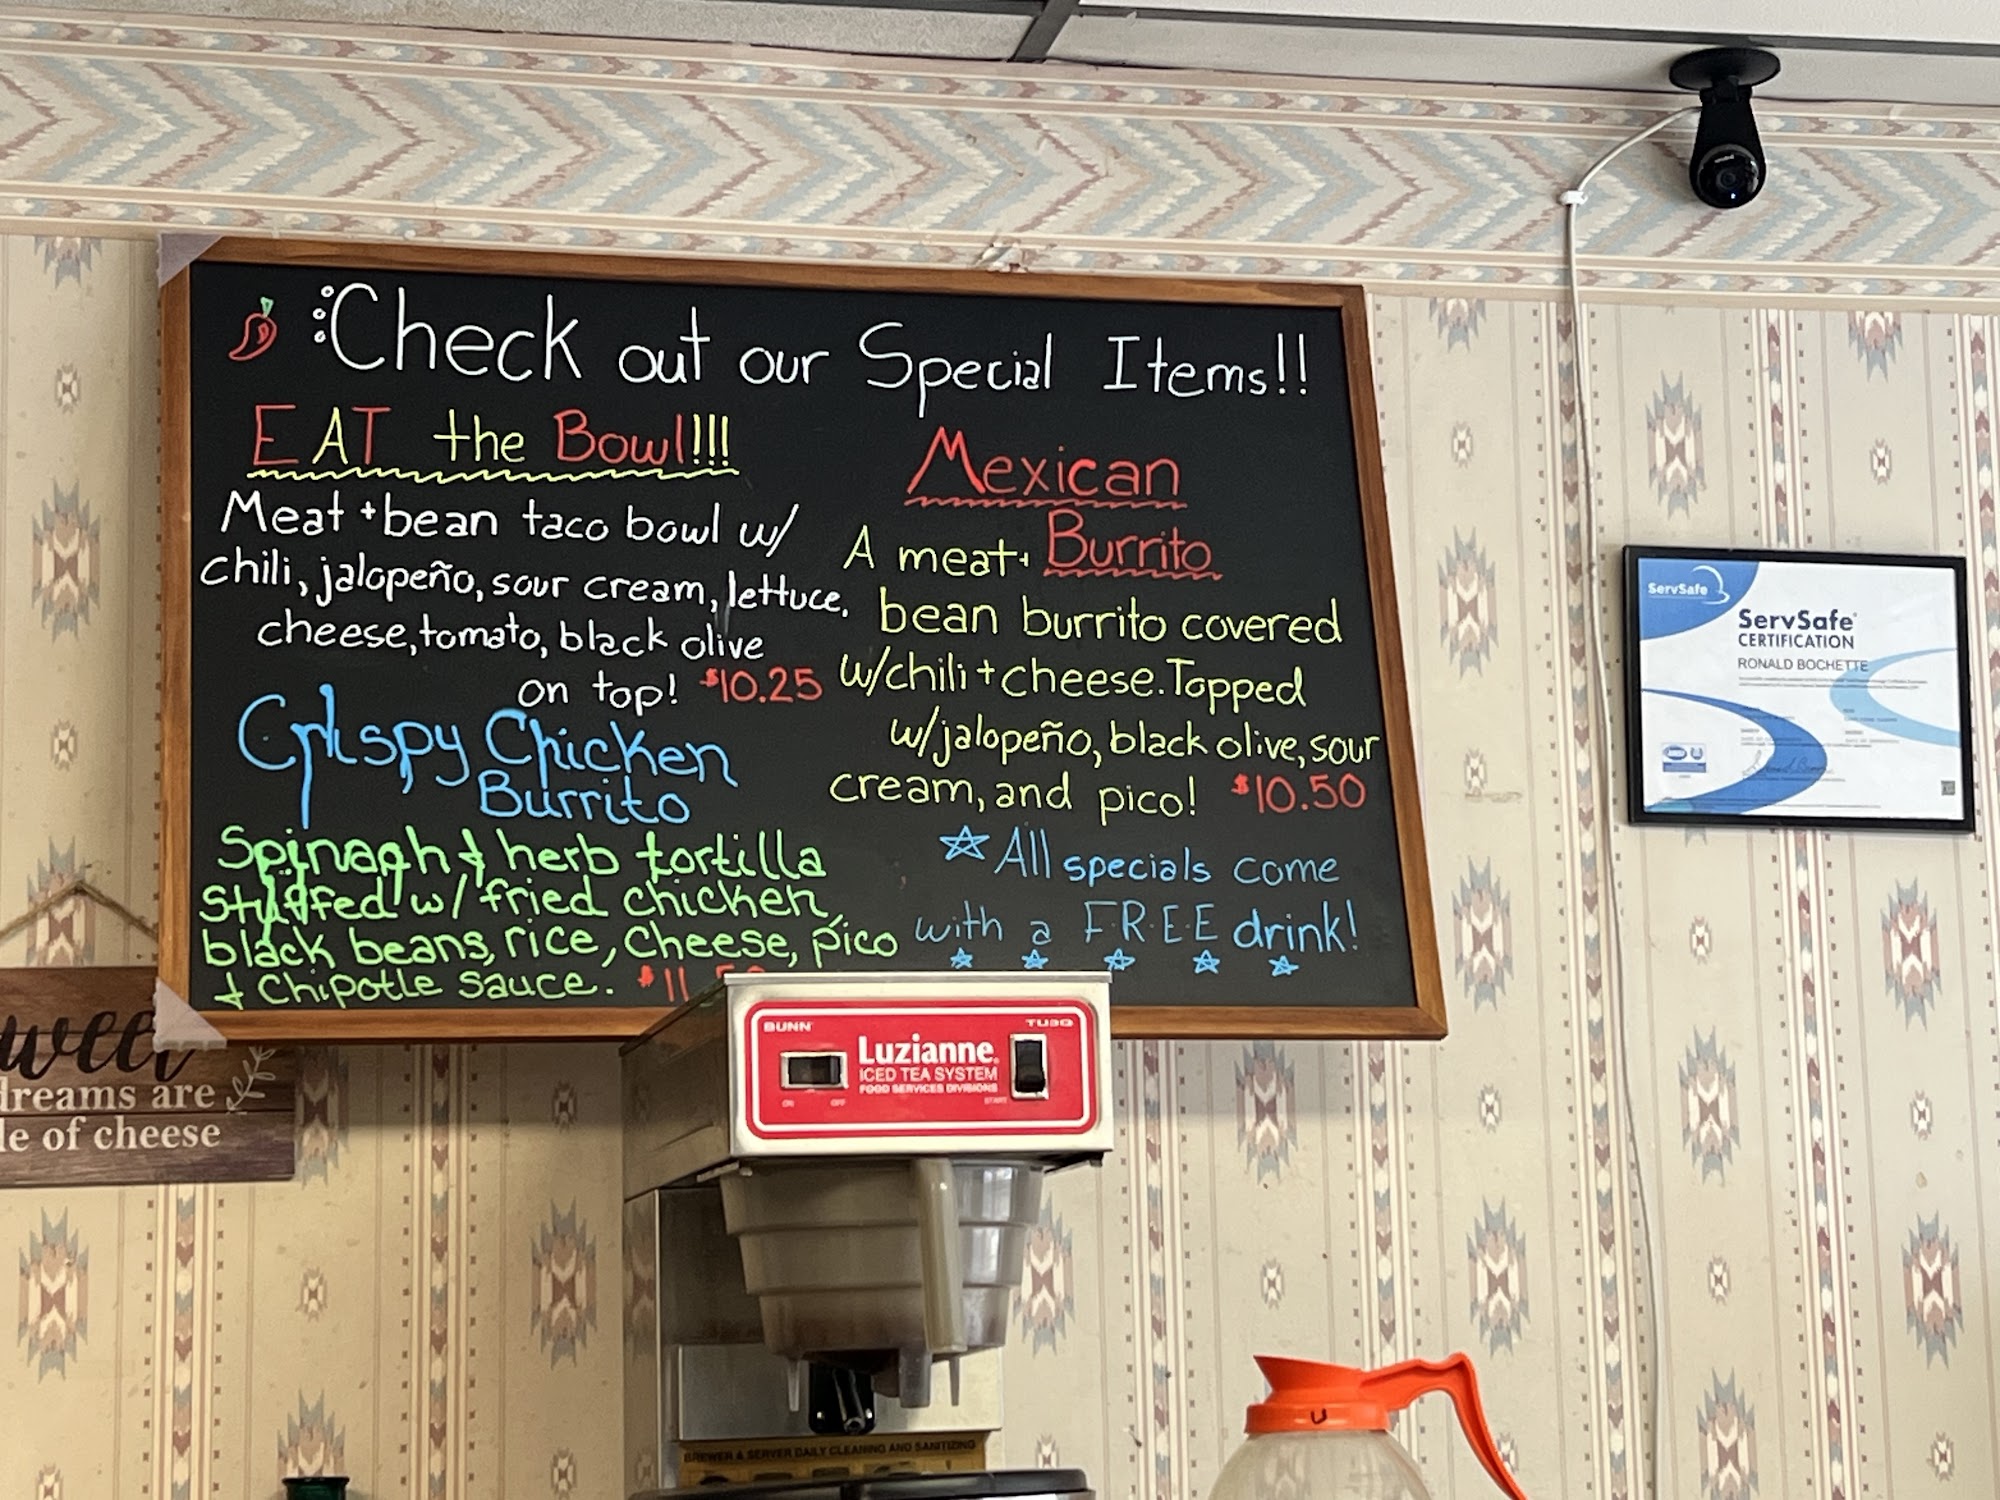 Check out our Special Items!!
EAT the Bowl!!!
Meat + bean taco bowl w/
chili, jalopeño, sour cream, lettuce,
cheese, tomato, black olive
on top! $10.25
Crispy Chicken
Burrito
Spinach + herb tortilla
stuffed w/ fried chicken,
black beans, rice, cheese, pico
+ Chipotle sauce. $11.50
Mexican
Burrito
A meat +
bean burrito covered
w/chili + cheese. Topped
w/jalopeño, black olive, sour
cream, and pico! $10.50
All specials come
with a F·R·E·E drink!
ServSafe
ServSafe®
CERTIFICATION
RONALD BOCHETTE
dreams are
of cheese
BUNN
TU3Q
Luzianne®
ICED TEA SYSTEM
FOOD SERVICES DIVISIONS
ON OFF START
BREWER & SERVER DAILY CLEANING AND SANITIZING
U